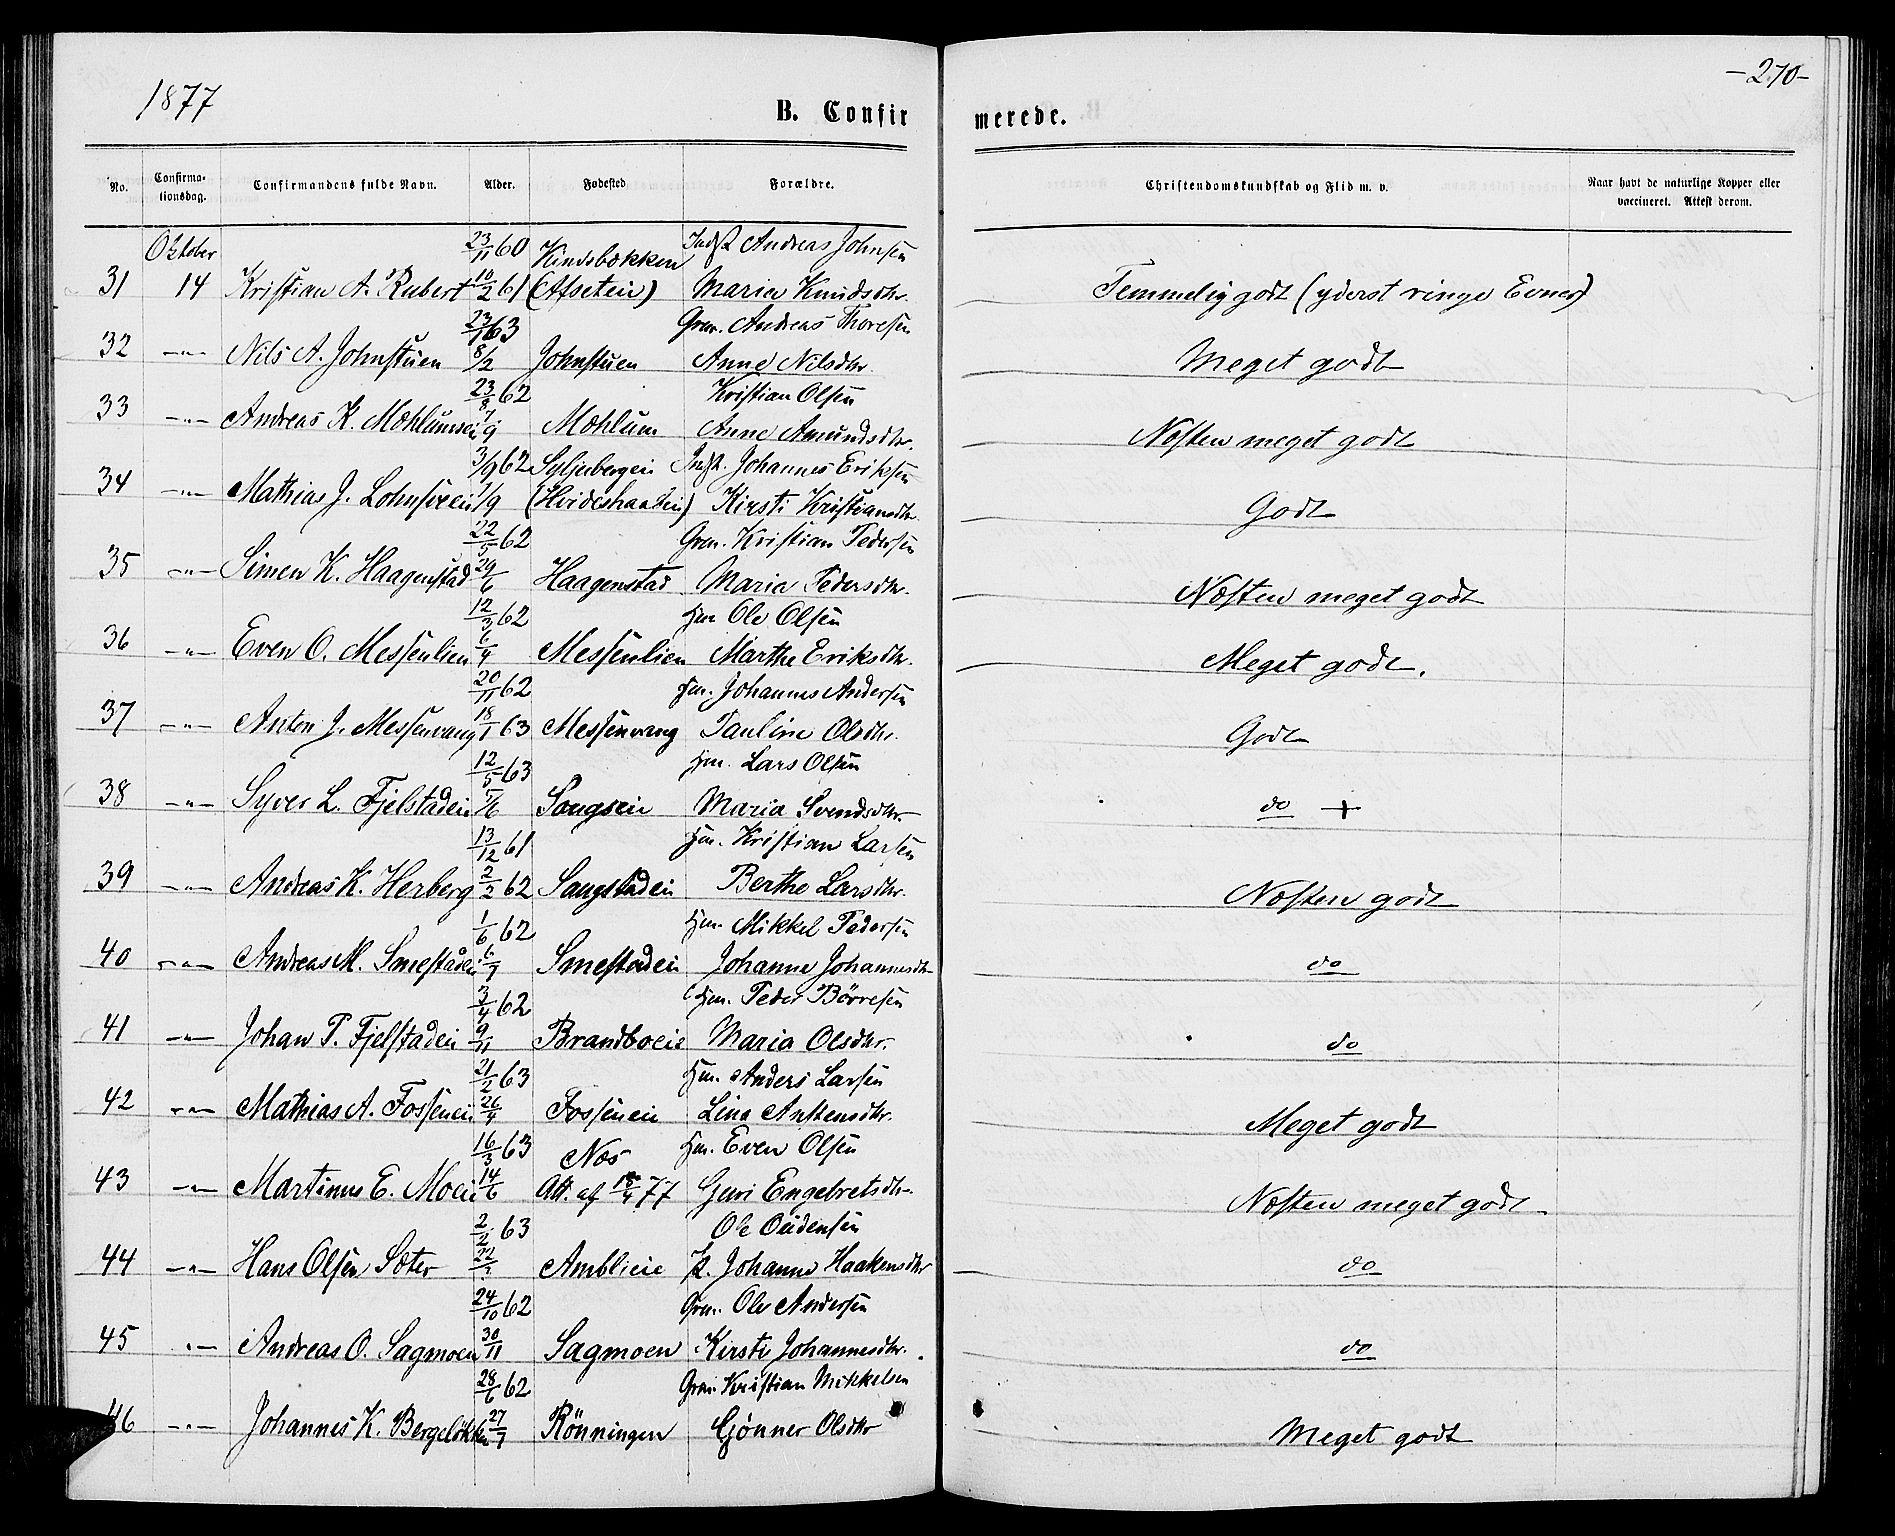 1877
-270-
B. Confirmerede.
No. Confirmationsdag. Confirmandens fulde Navn. Alder. Fødested Forældre. Christendomskundskab og Flid m. v. Naar havt de naturlige Kopper eller vaccineret. Attest derom.
Oktober 23/11 60 Kindsbækken Indst. Andreas Johnsen
31 14 Kristian A. Rubert 10/2 61 (Afsetein) Maria Knudsdtr. Temmelig godt (yderst ringe Evner)
23/1 63 Grm. Andreas Thoresen
32 -"- Nils A. Johnstuen 8/2 Johnstuen Anne Nilsdtr. Meget godt
23/8 62 Kristian Olsen
33 -"- Andreas K. Mæhlumsei 7/9 Mæhlum Anne Amundsdtr. Næsten meget godt
3/9 62 Syljubergei Indst. Johannes Eriksen
34 -"- Mathias J. /9 Kirsti Kristiansdtr. Godt
22/5 62 Grm. Kristian Pedersen
35 -"- Simen K. Haagenstad 29/6 Haagenstad Maria Pedersdtr. Næsten meget godt
12/3 62 Hm. Ole Olsen
36 -"- Even O. Messenlien 6/4 Messenlien Marthe Eriksdtr. Meget godt.
20/11 62 Hm. Johannes Andersen
37 -"- Anton J. Messenvang 18/1 63 Messenvang Pauline Olsdtr. Godt
12/5 63 Hm. Lars Olsen
38 -"- Syver L. Fjelstadei 5/6 Sougsei Maria Svendsdtr. do +
13/12 61 Hm. Kristian Larsen
39 -"- Andreas K. Herberg 2/2 62 Saugstadei Berthe Larsdtr. Næsten godt
1/6 62 Hm. Mikkel Pedersen
40 -"- Andreas M. Smestadei 6/7 Smestadei Johanne Johannesdtr do
3/4 62 Hm. Peder Börresen
41 -"- Johan P. Fjelstadei 9/11 Brandboeie Maria Olsdtr. do
21/2 63 Hm. Anders Larsen
42 -"- Mathias A. Fossenei 26/4 Fossenei Lina Antensdtr. Meget godt
16/3 63 Næs Hm. Even Olsen
43 -"- Martinus E. Moei 14/6 Att. af 18/4 77 Guri Engebretsdtr. Næsten meget godt
2/2 63 Ole Oudensen
44 -"- Hans Olsen Sæter 22/ Amblieie p. Johanne Haakensdtr do
24/10 62 Grm. Ole Andersen
45 "- Andreas O. Sagmoen 30/11 Sagmoen Kirsti Johannesdtr. do
28/6 62 Grm. Kristian Mikkelsen
46 -"- Johannes K. Bergeløkken 27/7 Rönningen Gjönner Olsdtr Meget godt